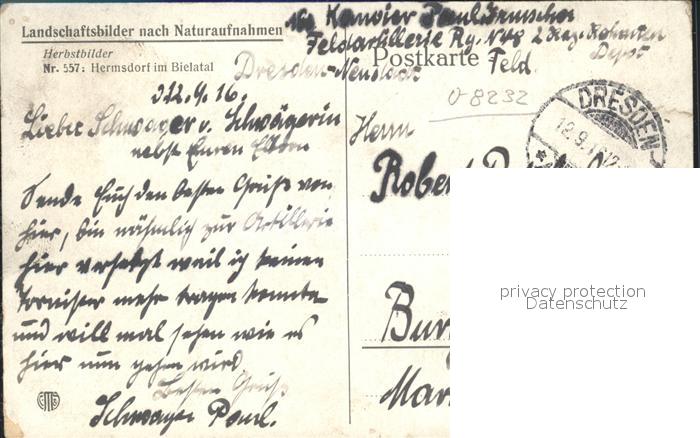 Landschaftsbilder nach Naturaufnahmen
Herbstbilder
Nr. 557: Hermsdorf im Bielatal
Kanonier Paul
Feldartillerie Rg. 2 Rekruten
Postkarte
Depot
Dresden-Neustadt Feld.
0-8232
DRESDEN
12.9.16
12.9.16.
Lieber Schwager u. Schwägerin
nebst Euren Eltern
Herrn
Robert
Sende Euch den besten Gruß von
hier, bin nähmlich zur Artillerie
hier versetzt weil ich keinen
Tornister mehr tragen konnte
und will mal sehen wie es
hier nun gehen wird
Besten Gruß
Schwager Paul.
Bur
Mar
privacy protection
Datenschutz